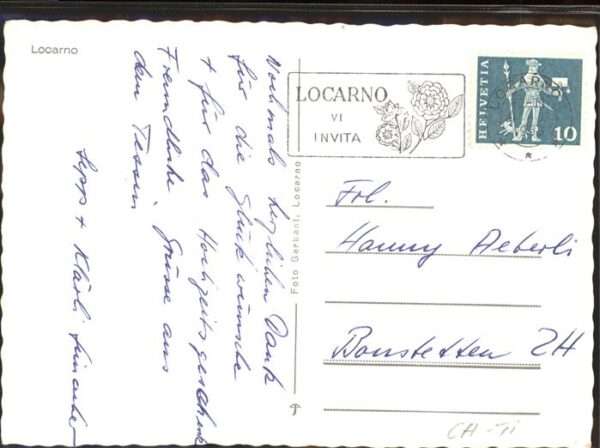 Locarno
Nochmals herzlichen Dank
für die Glückwünsche
+ für das Hochzeitsgeschenk
Freundliche Grüsse aus
dem Tessin
Sepp + Klärli
LOCARNO
VI
INVITA
HELVETIA
10
LOCARNO
Foto Garbani, Locarno
Frl.
Hanny Aeberli
Bonstetten ZH
CH-TI